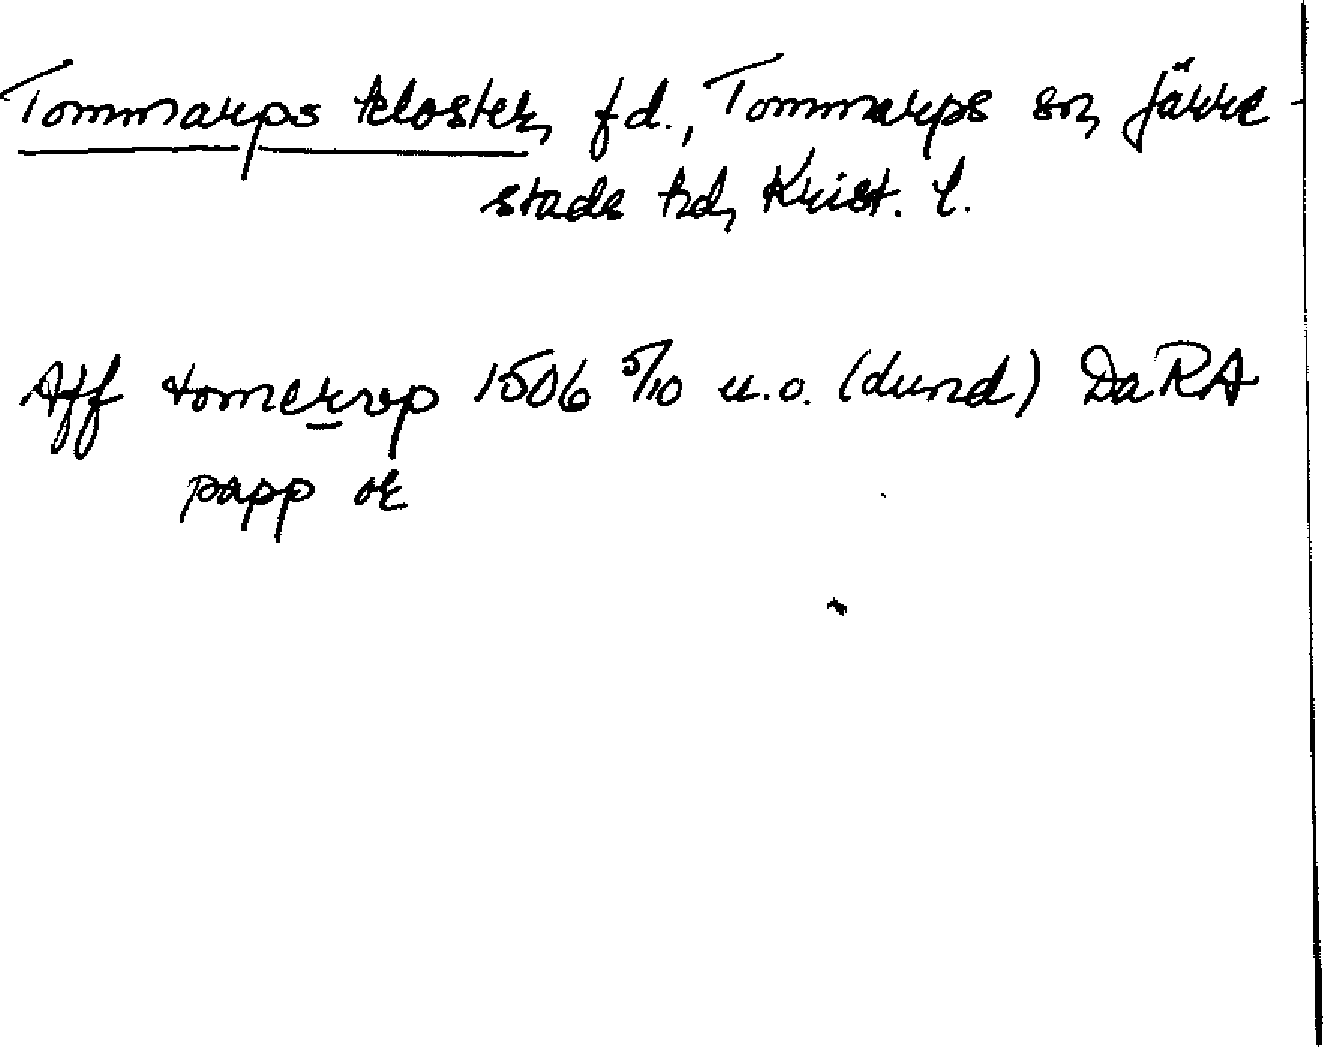 Tommarps kloster, fd., Tommarps sn, Järre-
stads hd, Krist. l.
Aff tomerop 1506 5/10 u.o. (dund) DaRA
papp or